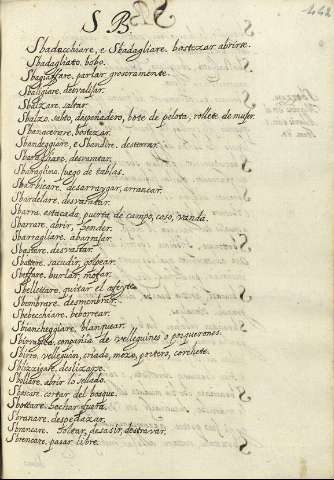 S B
442
Sbadacchiare, e Sbadagliare. bostezar abrirse.
Sbadagliato. bobo.
Sbagiaffare. parlar groseramente.
Sbaligiare. desvalisar.
Sbalzare. saltar.
Sbalzo. salto, despeñadero, bote de pelota, rollete de muger.
bostezar.
Sbandeggiare, e Sbandire. desterrar.
Sbaragliare. desbaratar.
Sbaraglino. juego de tablas.
Sbarbicare. desarraygar, arrancar.
Sbardelare. desbaratar.
Sbarra. estacada, puerta de campo, coso, vanda.
Sbarrare. abrir, hender.
Sbarragliare.
Sbattere. sacudir, golpear.
Sbeffare. burlar, mofar.
Sbellettare. quitar el afeyte.
Sbembrare. desmembrar.
Sbevecchiare. beborrear.
Sbiancheggiare. blanquear.
Sbirraglia. compañia de velleguines o porquerones.
Sbirro. velleguin, criado, mozo, portero, corchete.
Sblizzigare. deslizarse.
Sbollare. abrir lo sellado.
Sboscare. cortar del bosque.
Sbottare. hechar fuera.
Sbranare. despedazar.
Sbrancare. desasir, destravar.
Sbrencare. pasar libre.